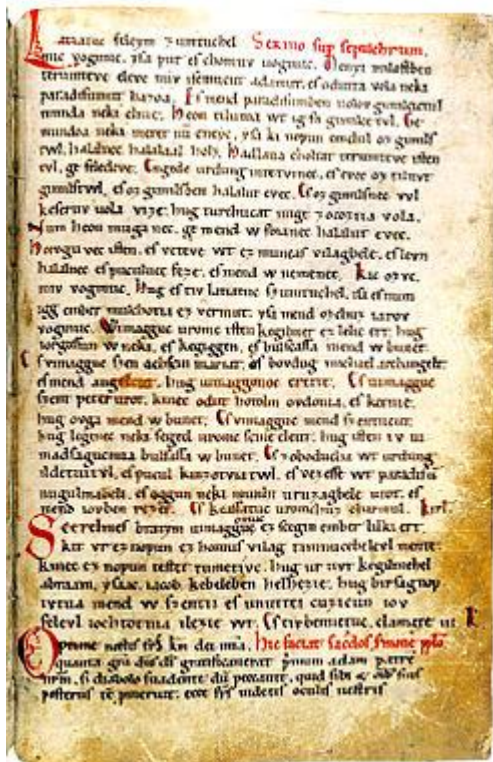 Latiatuc feleym zumtuchel Sermo sup sepulchrum.
mic vogmuc. ysa pur es chomuv uogmuc. Menyi milostben
terumteve eleve miv isemucut adamut. es odutta vola neki
paradisumut hazoa. Es mend paradisumben uolov gimilcictul
munda neki elnie. Heon tilutoa wt ig fa gimilce tvl. Ge
mundoa neki meret nu eneyc. ysa ki nopun emdul oz gimils
tvl. halalnec halalaal holz. Hadlaua choltat terumteve isten
tvl. ge feledeve. Engede urdung intetvinec. es evec oz tiluvt
gimilstwl. es oz gimilsben halalut evec. Es oz gimilsnec vvl
keseruv uola vize. hug turchucat mige zocoztia vola.
Num heon muga nec. ge mend w foianec halalut evec.
Horogu vec isten. es veteve wt ez muncas vilagbele. es levn
halalnec es puculnec feze. es mend w nemenec. Kic ozvc.
miv vogmuc. Hug es tiv latiatuc szumtuchel. isa es num
igg ember mulchotia ez vermut. ysa mend ozchuz iarov
vogmuc. Wimagguc uromc isten kegilmet ez lelic ert. hug
iorgossun w neki. es kegiggen. es bulsassa mend w bunet.
Es vimagguc szen achscin mariat. es bovdug michael archangelt.
es mend angelcut. hug uimaggonoc erette. Es uimagguc
szent peter urot. kinec odut hotolm ovdonia. es ketnie.
hug ovga mend w bunet. Es vimagguc mend szentucut.
hug legenec neki seged uromc scine eleut. hug isten iv ui
madsagucmia bulsassa w bunet. Es zoboducha wt urdung
ildetuitvl. es pucul kinzotviatwl. es vezesse wt paradisu
nugulmabeli. es oggun neki munhi uruzagbele utot. es
mend iovben rezet. Es keassatuc uromchuz charmul. Kirl.
Scerelmes bratym uimagguc omuc ez scegin ember lilki ert.
kit vr ez nopun ez homus vilag timnucebelevl mente.
kinec ez nopun testet tumetivc. hug ur uvt kegilmehel
abraam. ysaac. iacob. kebeleben helhezie. hug birsagnop
ivtva mend w szentii es unuttei cuzicun iov
felevl iochtotnia ilezie wt. Es tiv bennetuc. clamate iii. K.
frs kmi dei hic faciat sacdos smone pplo
quanta gra dns ds primum adam patre
nrm, diabolo suadente quid sibi
posteris ecce frs uidetis oculis uestris